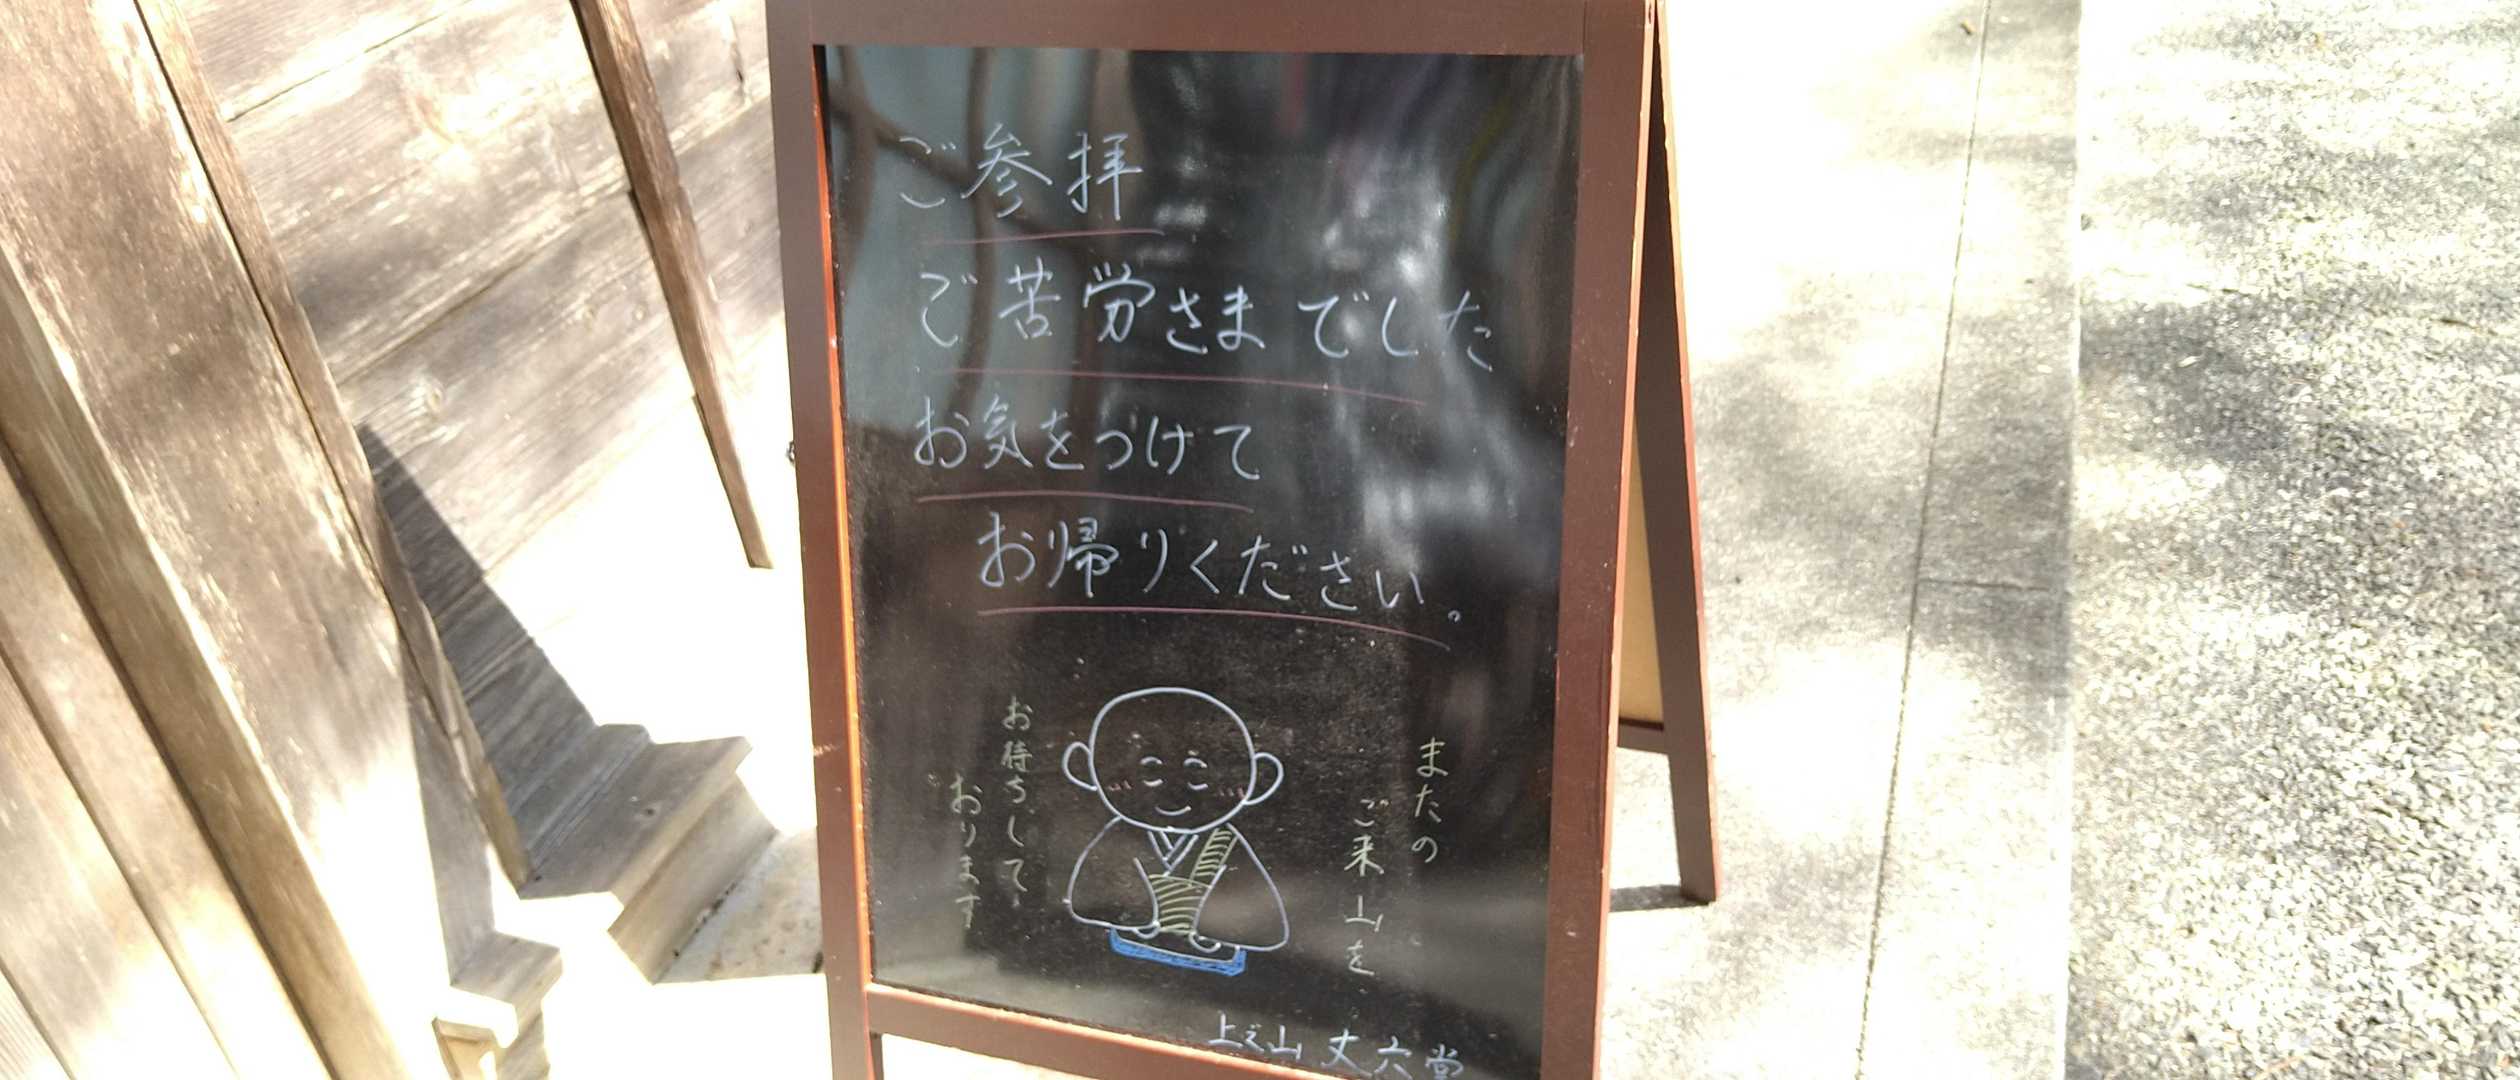 ご参拝
ご苦労さまでした
お気をつけて
お帰りください。
またの
ご来山を
お待ちして
おります
上之山 丈六堂